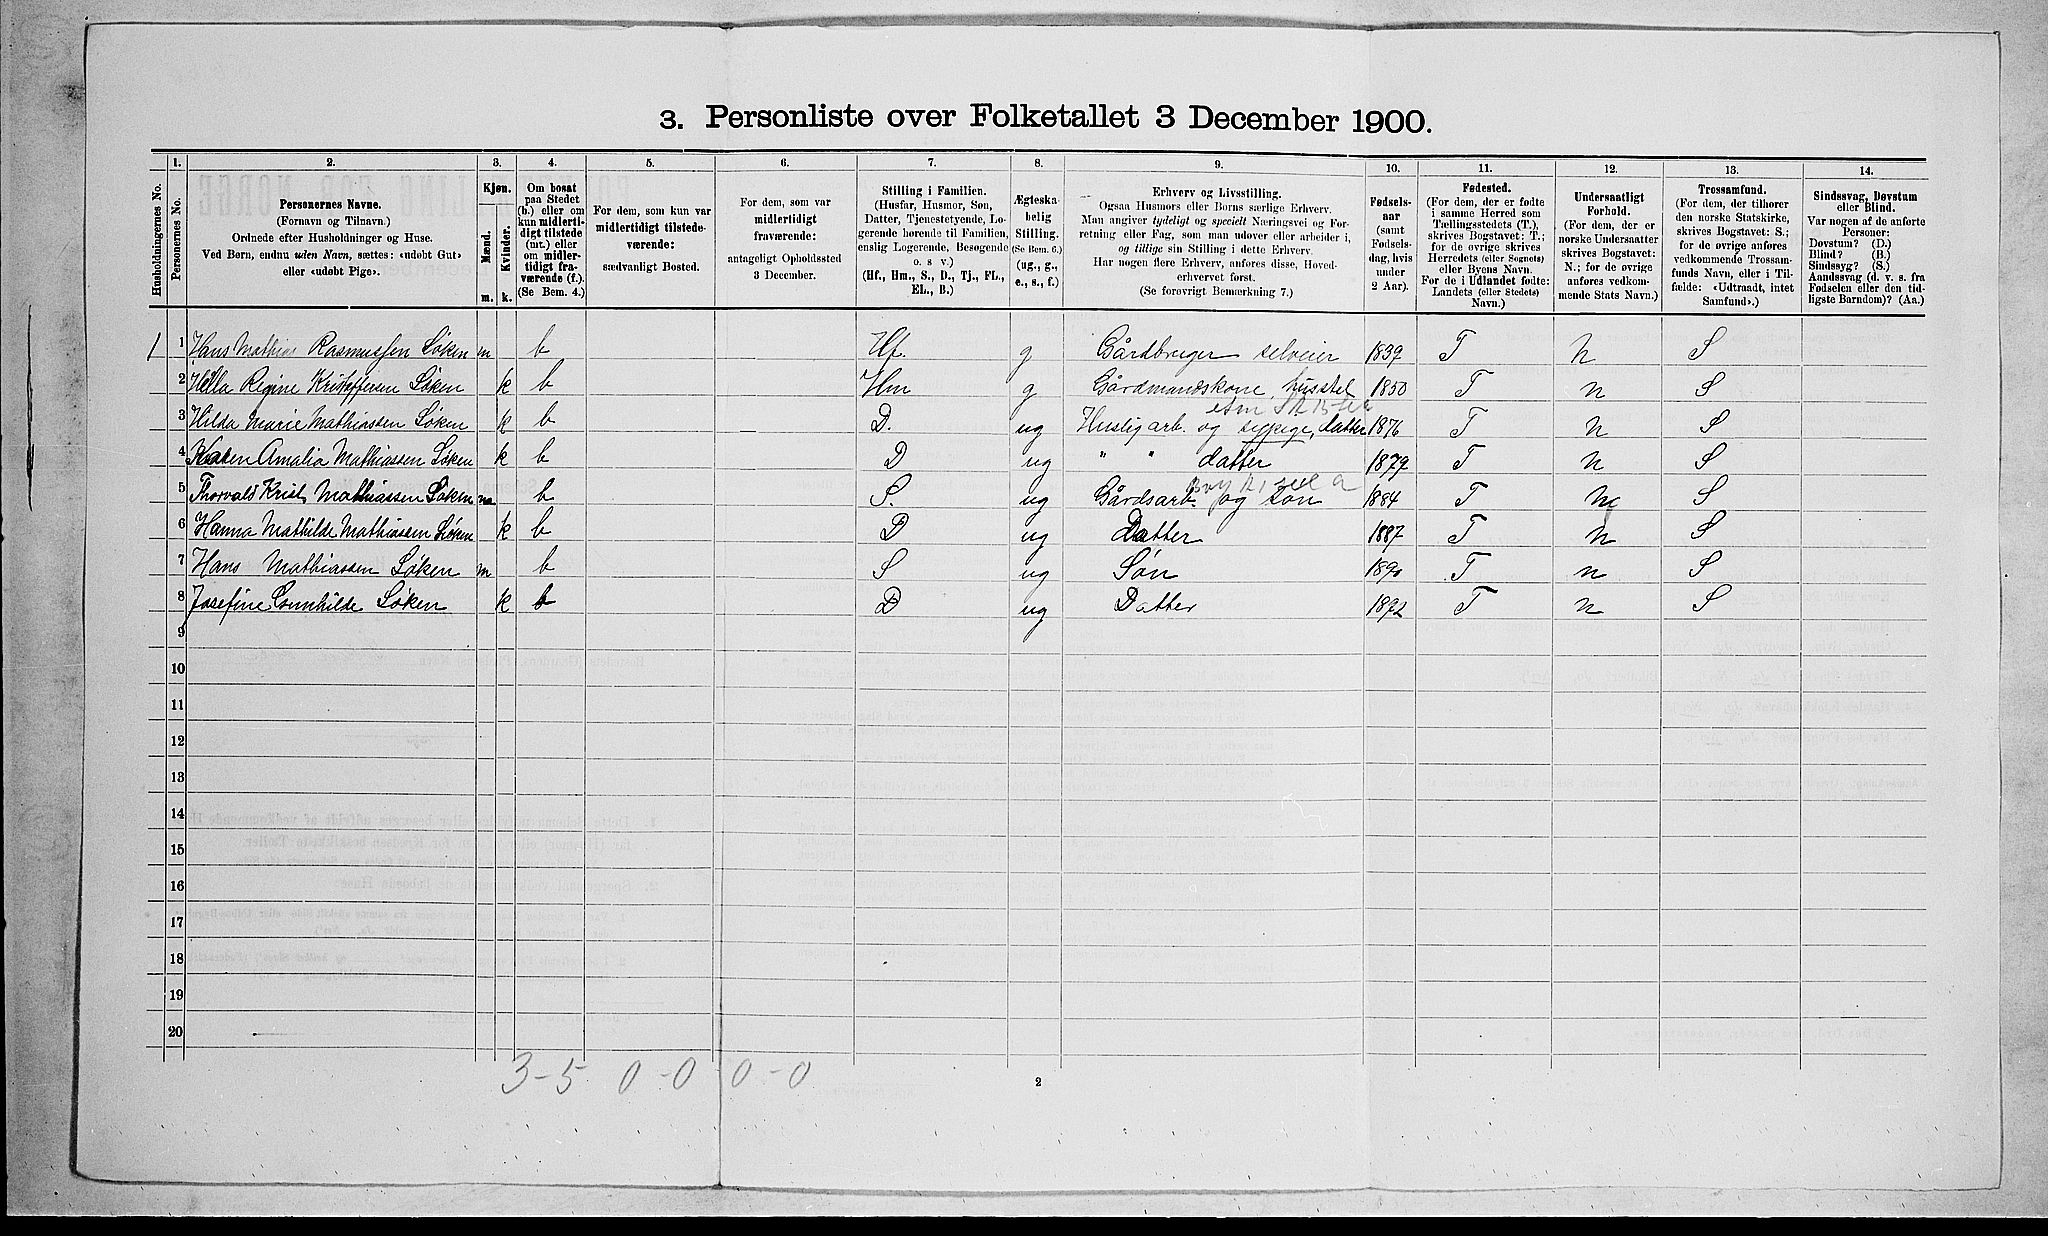 3. Personliste over Folketallet 3 December 1900.
Husholdningernes No.
1.
Personernes No.
2.
Personernes Navne.
(Fornavn og Tilnavn.)
Ordnede efter Husholdninger og Huse.
Ved Børn, endnu uden Navn, sættes: «udøbt Gut»
eller «udøbt Pige».
3.
Kjøn.
Mænd.
Kvinder.
m. k.
4.
Om bosat
paa Stedet
(b.) eller om
kun midlerti-
digt tilstede
(mt.) eller
om midler-
tidigt fra-
værende (f.).
(Se Bem. 4.)
5.
For dem, som kun var
midlertidigt tilstede-
værende:
sædvanligt Bosted.
6.
For dem, som var
midlertidigt
fraværende:
antageligt Opholdssted
3 December.
7.
Stilling i Familien.
(Husfar, Husmor, Søn,
Datter, Tjenestetyende, Lo-
gerende hørende til Familien,
enslig Logerende, Besøgende
o. s v.)
(Hf., Hm., S., D., Tj., FL.,
EL., B.)
8.
Ægteska-
belig
Stilling.
(Se Bem. 6.)
(ug., g.,
e., s., f.)
9.
Erhverv og Livsstilling.
Ogsaa Husmors eller Børns særlige Erhverv.
Man angiver tydeligt og specielt Næringsvei og For-
retning eller Fag, som man udøver eller arbeider i,
og tillige sin Stilling i dette Erhverv.
Har nogen flere Erhverv, anføres disse, Hoved-
erhvervet først.
(Se forøvrigt Bemærkning 7.)
10.
Fødsels-
aar
(samt
Fødsels-
dag, hvis
under
2 Aar).
11.
Fødested.
(For dem, der er fødte
i samme Herred som
Tællingsstedets (T.),
skrives Bogstavet: T.;
for de øvrige skrives
Herredets (eller Sognets)
eller Byens Navn.
For de i Udlandet fødte:
Landets (eller Stedets)
Navn.)
12.
Undersaatligt
Forhold.
(For dem, der er
norske Undersaatter
skrives Bogstavet:
N.; for de øvrige
anføres vedkom-
mende Stats Navn.)
13.
Trossamfund.
(For dem, der tilhører
den norske Statskirke,
skrives Bogstavet: S.;
for de øvrige anføres
vedkommende Trossam-
funds Navn, eller i Til-
fælde: «Udtraadt, intet
Samfund».)
14.
Sindssvag, Døvstum
eller Blind.
Var nogen af de anførte
Personer:
Døvstum? (D.)
Blind? (B.)
Sindssyg? (S.)
Aandssvag (d. v. s. fra
Fødselen eller den tid-
ligste Barndom)? (Aa.)
1 1 Hans Mathias Rasmussen Søken m b Hf. g Gårdbruger selveier 1839 T N S
2 Hella Regine Kristoffersen Søken k b Hm g Gårdmandskone, husstel 1850 T N S
3 Hilda Marie Mathiassen Søken k b D. ug Huslig arb. og sypige, datter 1876 T N S
4 Karen Amalia Mathiassen Søken k b D ug " " datter 1879 T N S
5 Thorvald Krist. Mathiassen Søken m b S. ug Gårdsarb. og søn 1884 T N S
6 Hanna Mathilde Mathiassen Søken k b D ug Datter 1887 T N S
7 Hans Mathiassen Søken m b S ug Søn 1890 T N S
8 Josefine Gunhilde Søken k b D ug Datter 1892 T N S
9
10
11
12
13
14
15
16
17
18
19
20
3-5 0-0 0-0
2